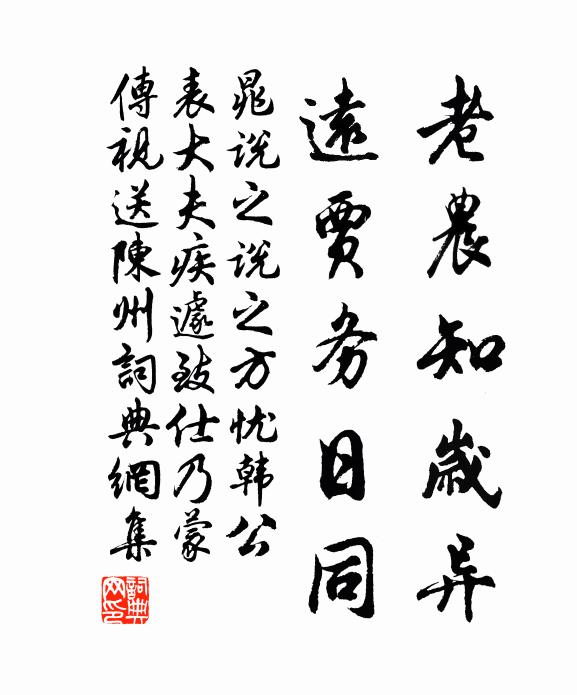 老農知歲异
遠賈务日同
晁说之说之方忧韩公
表大夫疾遽致仕乃蒙
傳視送陳州詞典網集
詞典网印